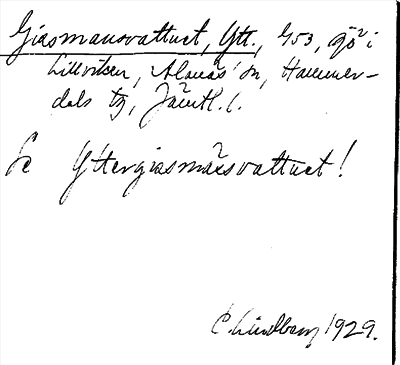 Giasmansvattnet, Ytt., 453, sjö i
Lillviken, Alanäs sn, Hammer-
dals tg, Jämtl. l.
Se Yttergiasmansvattnet!
C. Lindberg 1929.